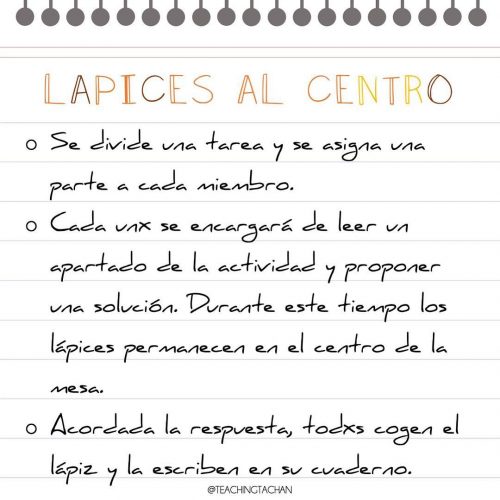 LAPICES AL CENTRO
Se divide una tarea y se asigna una
parte a cada miembro.
Cada unx se encargará de leer un
apartado de la actividad y proponer
una solución. Durante este tiempo los
lápices permanecen en el centro de la
mesa.
Acordada la respuesta, todxs cogen el
lápiz y la escriben en su cuaderno.
@TEACHINGTACHAN